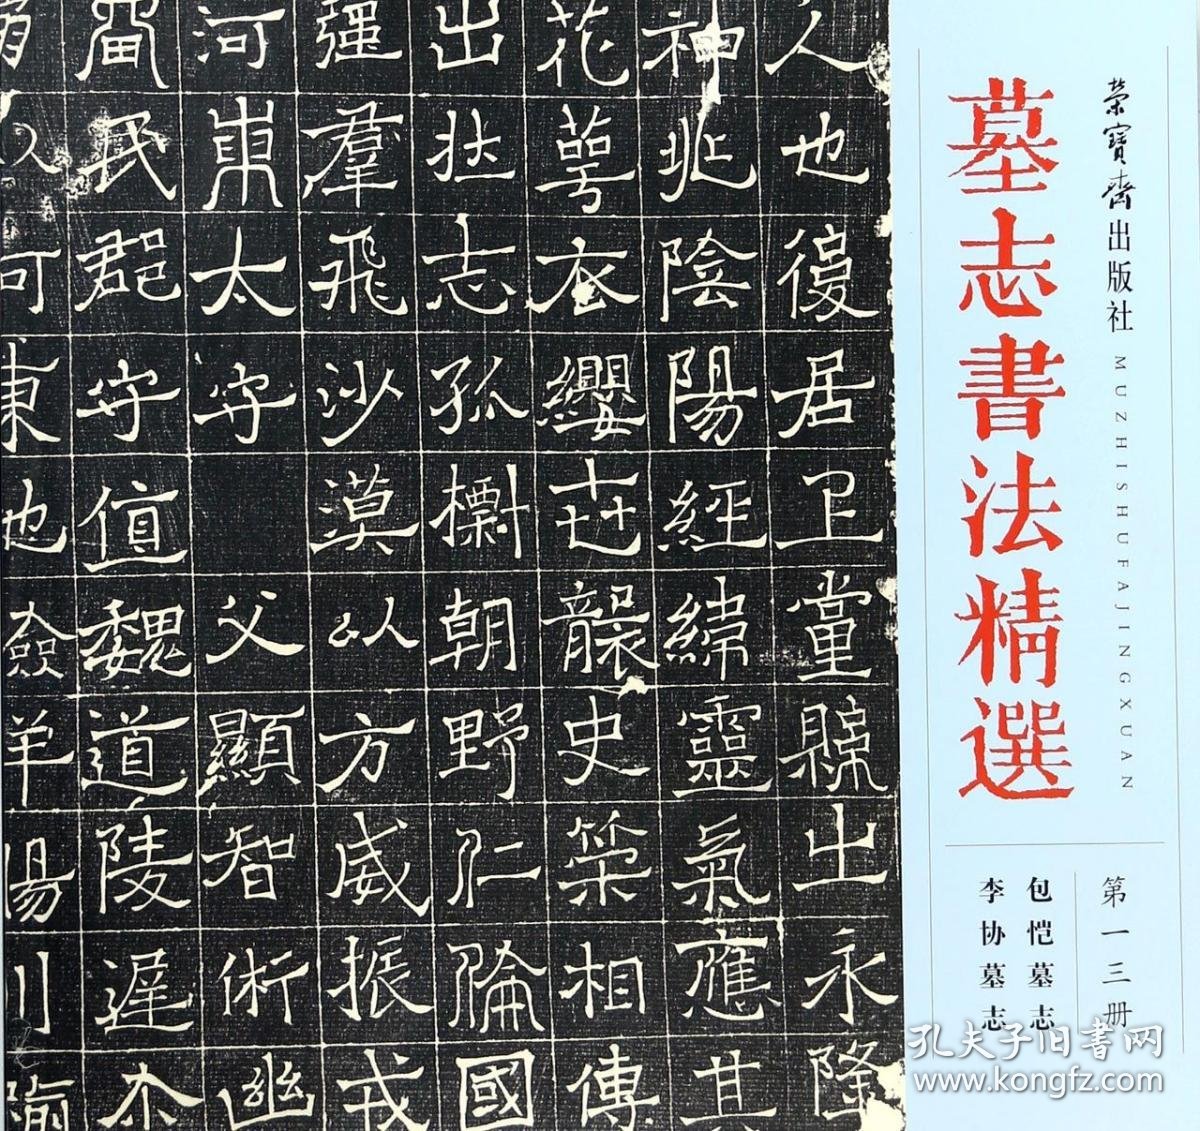 荣寶齋出版社
MUZHISHUFAJINGXUAN
墓志書法精選
第一三册
包恺墓志
李协墓志
人也後居卫黨縣出永隆
神兆陰陽經緯靈氣應其
花萼衣纓世襲史築相傳
出壯志孤標朝野仁倫國
疆羣飛沙漠以方威振戎
河東太守父顯智術幽
民郡守值魏道陵遲木
可東也
孔夫子旧书网
www.kongfz.com